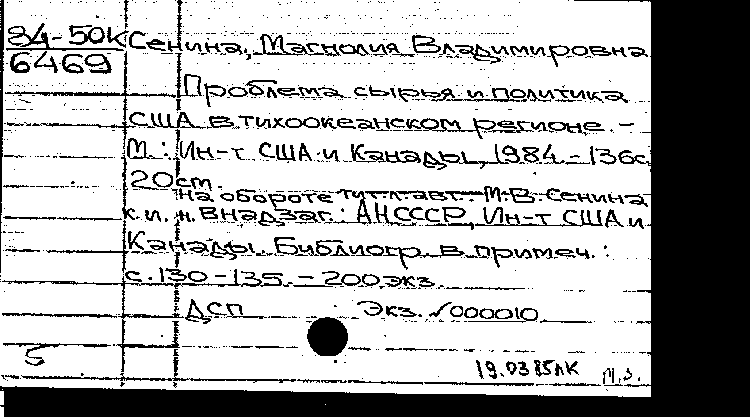 84-50к
6469
Сенина, Магнолия Владимировна
Проблема сырья и политика
США в тихоокеанском регионе. -
М.: Ин-т США и Канады, 1984. - 136с.
20см.
на обороте тит.л. авт. М.В. Сенина
к.и.н. В надзаг.: АНСССР, Ин-т США и
Канады. Библиогр. в примеч.:
с.130-135. - 200 экз.
ДСП Экз. √000010.
5
19.03 85 лк м.з.